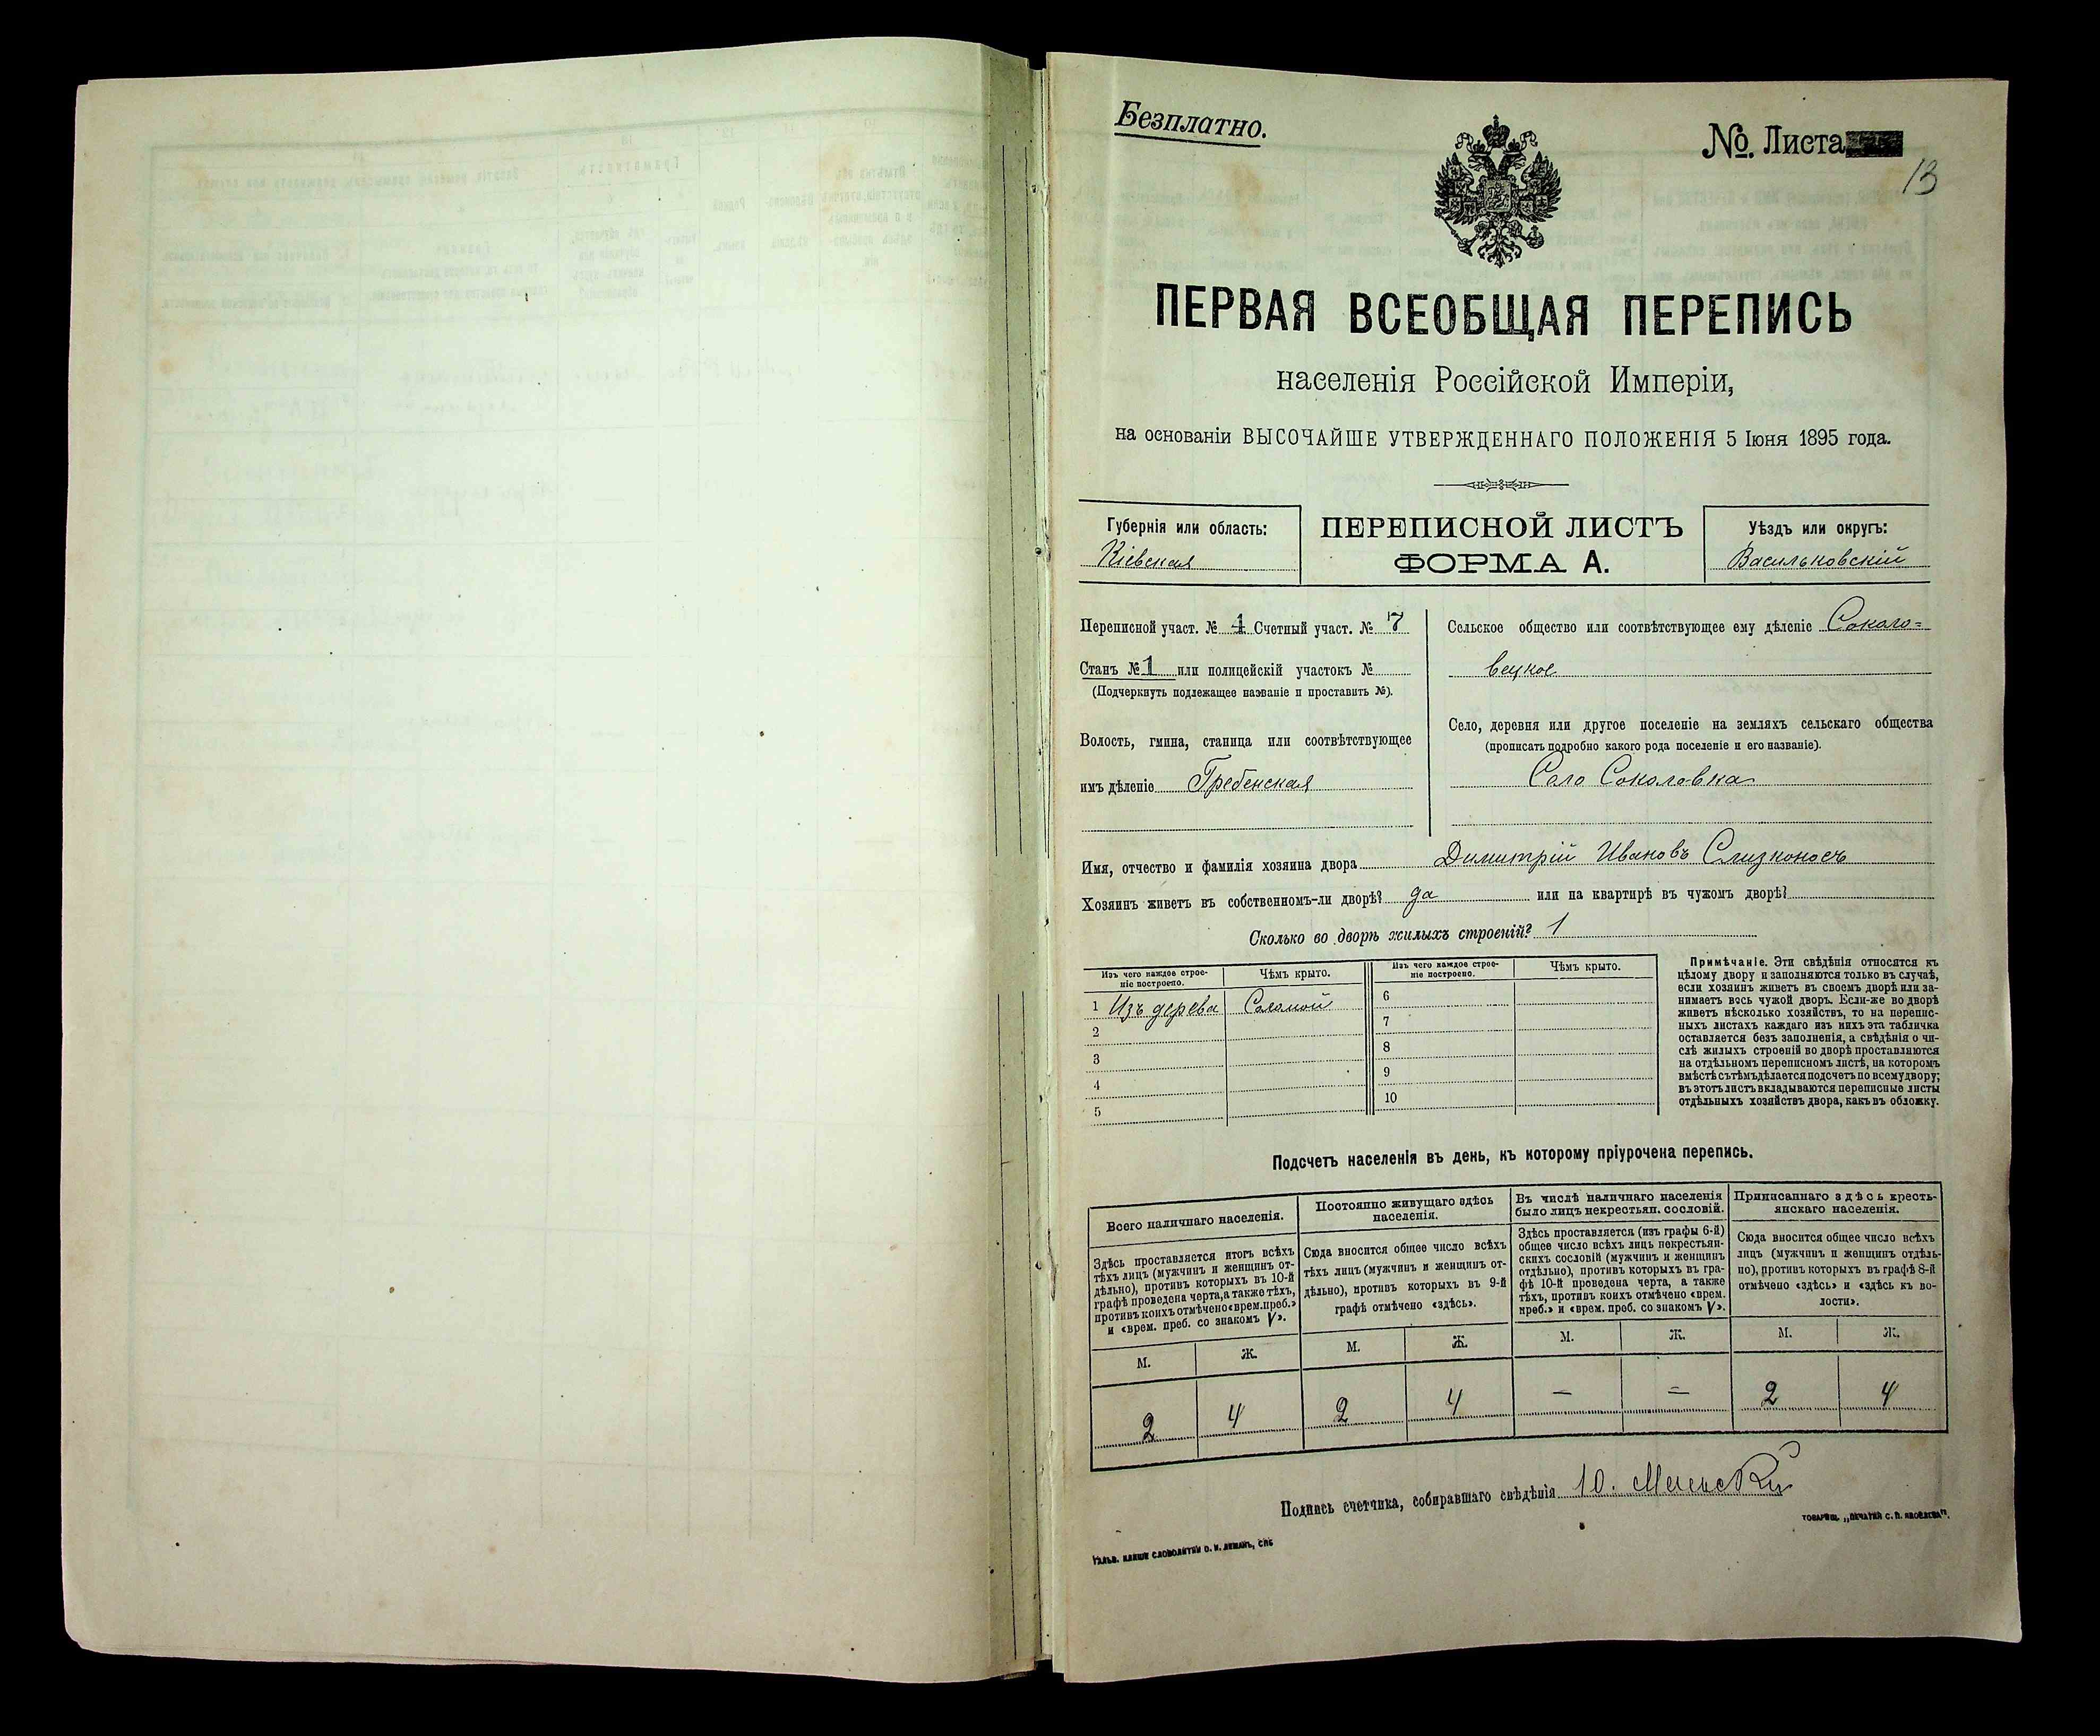 Безплатно.
№. Листа
13
ПЕРВАЯ ВСЕОБЩАЯ ПЕРЕПИСЬ
населенія Россійской Имперіи,
на основаніи ВЫСОЧАЙШЕ УТВЕРЖДЕННАГО ПОЛОЖЕНІЯ 5 Іюня 1895 года.
Губернія или область:
Кіевская
ПЕРЕПИСНОЙ ЛИСТЪ
ФОРМА А.
Уѣздъ или округъ:
Васильковскій
Переписной участ. № 4 Счетный участ. № 7
Станъ № 1 или полицейскій участокъ №
(Подчеркнуть подлежащее названіе и проставить №).
Волость, гмина, станица или соотвѣтствующее
имъ дѣленіе Гребенская
Сельское общество или соотвѣтствующее ему дѣленіе Соколо=
вецкое
Село, деревня или другое поселеніе на земляхъ сельскаго общества
(прописать подробно какого рода поселеніе и его названіе).
Село Соколовка
Имя, отчество и фамилія хозяина двора Димитрій Ивановъ Слизконосъ
Хозяинъ живетъ въ собственномъ-ли дворѣ? да или на квартирѣ въ чужомъ дворѣ?
Сколько во дворѣ жилыхъ строеній? 1
Изъ чего каждое строе-
ніе построено.
Чѣмъ крыто.
Изъ чего каждое строе-
ніе построено.
Чѣмъ крыто.
1 Изъ дерева Соломой
2
3
4
5
6
7
8
9
10
Примѣчаніе. Эти свѣдѣнія относятся къ
цѣлому двору и заполняются только въ случаѣ,
если хозяинъ живетъ въ своемъ дворѣ или за-
нимаетъ весь чужой дворъ. Если-же во дворѣ
живетъ нѣсколько хозяйствъ, то на перепис-
ныхъ листахъ каждаго изъ нихъ эта табличка
оставляется безъ заполненія, а свѣдѣнія о чи-
слѣ жилыхъ строеній во дворѣ проставляются
на отдѣльномъ переписномъ листѣ, на которомъ
вмѣстѣ съ тѣмъ дѣлается подсчетъ по всему двору;
въ этотъ листъ вкладываются переписные листы
отдѣльныхъ хозяйствъ двора, какъ въ обложку.
Подсчетъ населенія въ день, къ которому пріурочена перепись.
Всего наличнаго населенія.
Здѣсь проставляется итогъ всѣхъ
тѣхъ лицъ (мужчинъ и женщинъ от-
дѣльно), противъ которыхъ въ 10-й
графѣ проведена черта, а также тѣхъ,
противъ коихъ отмѣчено «врем. преб.»
и «врем. преб. со знакомъ V».
М. Ж.
2 4
Постоянно живущаго здѣсь
населенія.
Сюда вносится общее число всѣхъ
тѣхъ лицъ (мужчинъ и женщинъ от-
дѣльно), противъ которыхъ въ 9-й
графѣ отмѣчено «здѣсь».
М. Ж.
2 4
Въ числѣ наличнаго населенія
было лицъ некрестьян. сословій.
Здѣсь проставляется (изъ графы 6-й)
общее число всѣхъ лицъ некрестьян-
скихъ сословій (мужчинъ и женщинъ
отдѣльно), противъ которыхъ въ гра-
фѣ 10-й проведена черта, а также
тѣхъ, противъ коихъ отмѣчено «врем.
преб.» и «врем. преб. со знакомъ V».
М. Ж.
— =
Приписаннаго здѣсь кресть-
янскаго населенія.
Сюда вносится общее число всѣхъ
лицъ (мужчинъ и женщинъ отдѣль-
но), противъ которыхъ въ графѣ 8-й
отмѣчено «здѣсь» и «здѣсь къ во-
лости».
М. Ж.
2 4
Подпись счетчика, собиравшаго свѣдѣнія Ю.
ТОВАРИЩ. „ПЕЧАТНЯ С. П. ЯКОВЛЕВА".
ГАЛЬВ. КЛИШЕ СЛОВОЛИТНИ О. И. ЛЕМАНЪ, СПБ